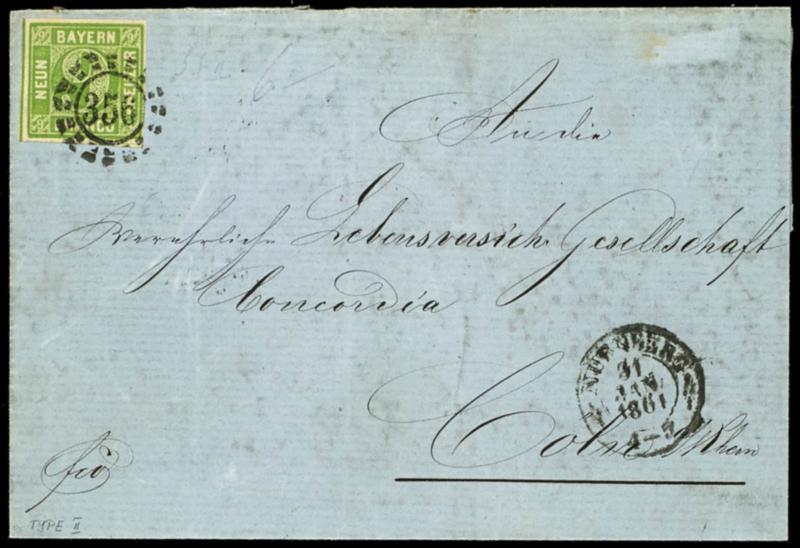 BAYERN
NEUN
356
An die
verehrliche Lebensversich. Gesellschaft
Concordia
NÜRNBERG
31
JAN.
1861
Cöln a/Rhein
fco
TYPE II